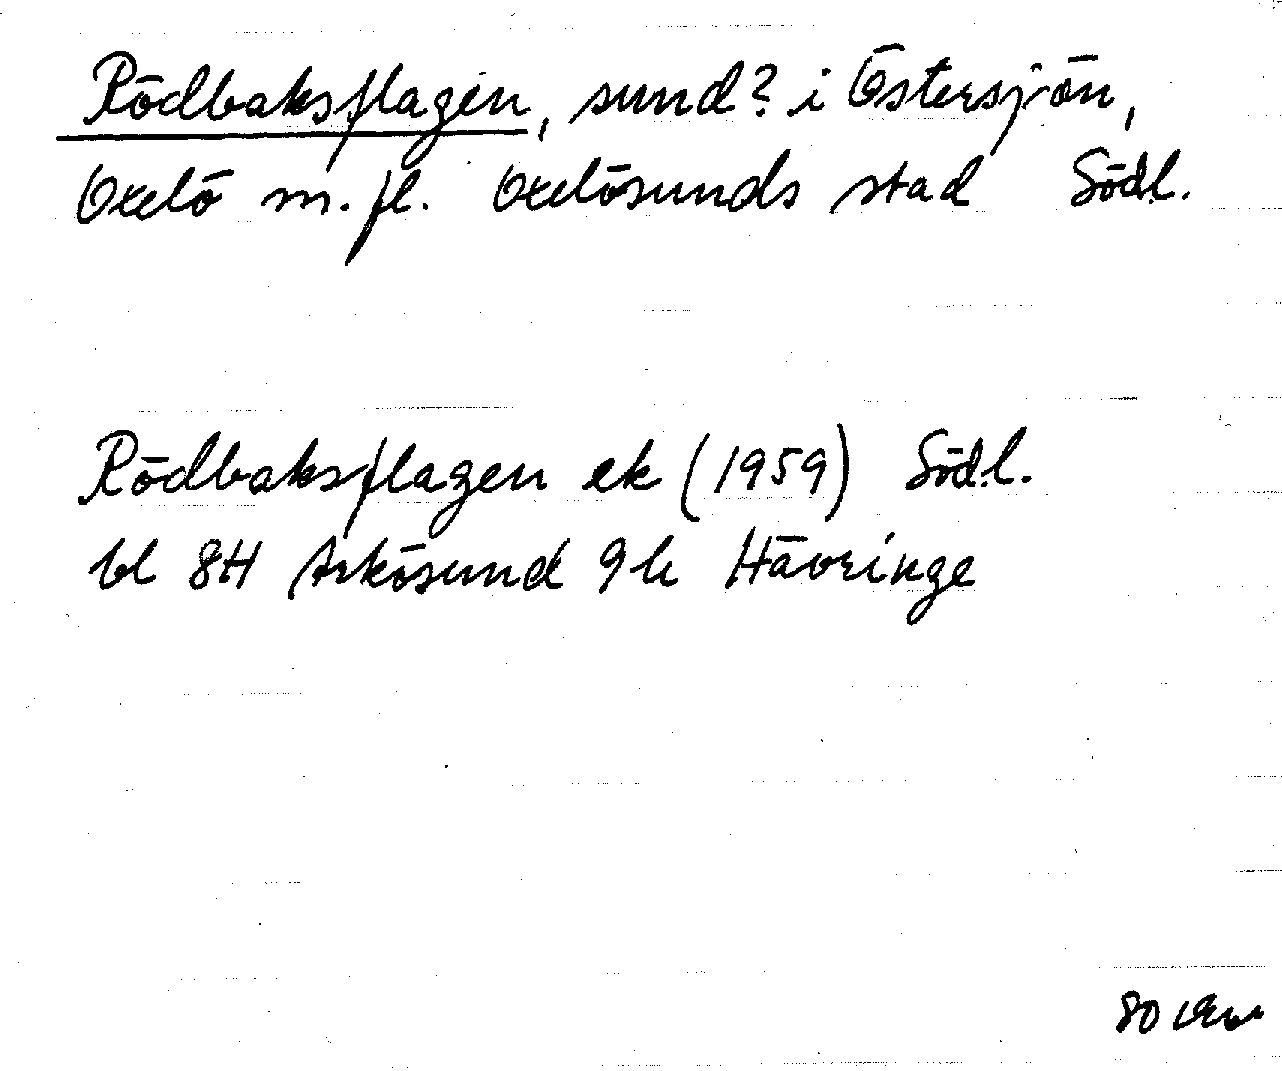 Rödbaksflagen, sund? i Östersjön,
Oxelö m.fl. Oxelösunds stad Södl.
Rödbaksflagen ek (1959) Södl.
bl 8H Arkösund 9h Hävringe
80